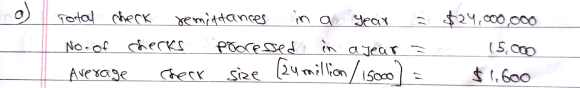 a) Total check remittances in a year = $24,000,000
No. of checks processed in a year = 15,000
Average check size [24 million / 15000] = $1,600